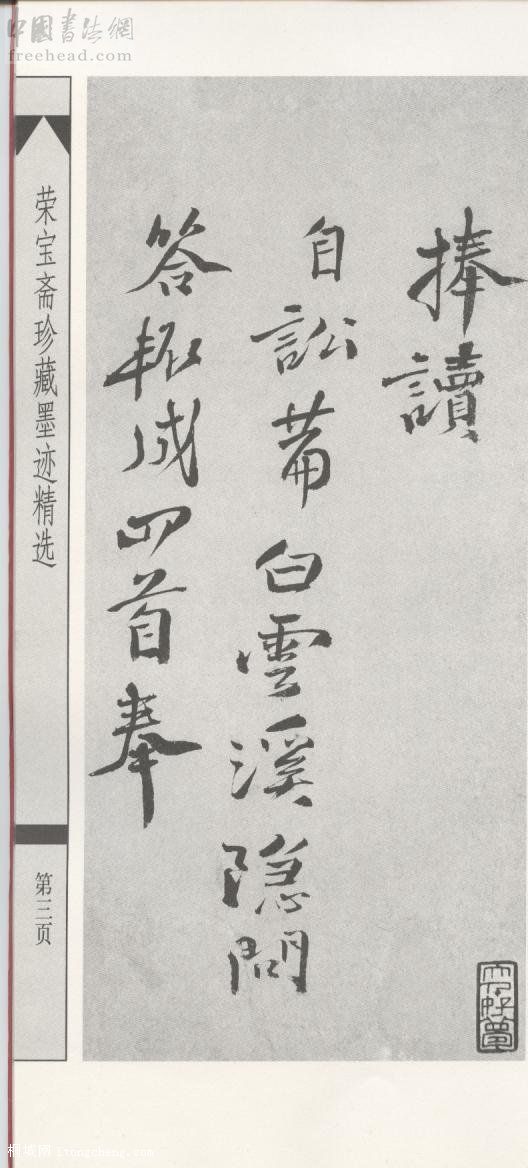 中國書法網
freehead.com
捧讀
自訟菴白雲溪隐問
答輒成四首奉
荣宝斋珍藏墨迹精选
第三页
桐城网 itongcheng.com